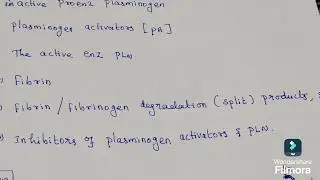 inactive proenz plasminogen
plasminogen activators [PA]
The active enz PLN
Fibrin
Fibrin / Fibrinogen degradation (split) products,
Inhibitors of plasminogen activators & PLN.
Wondershare
Filmora